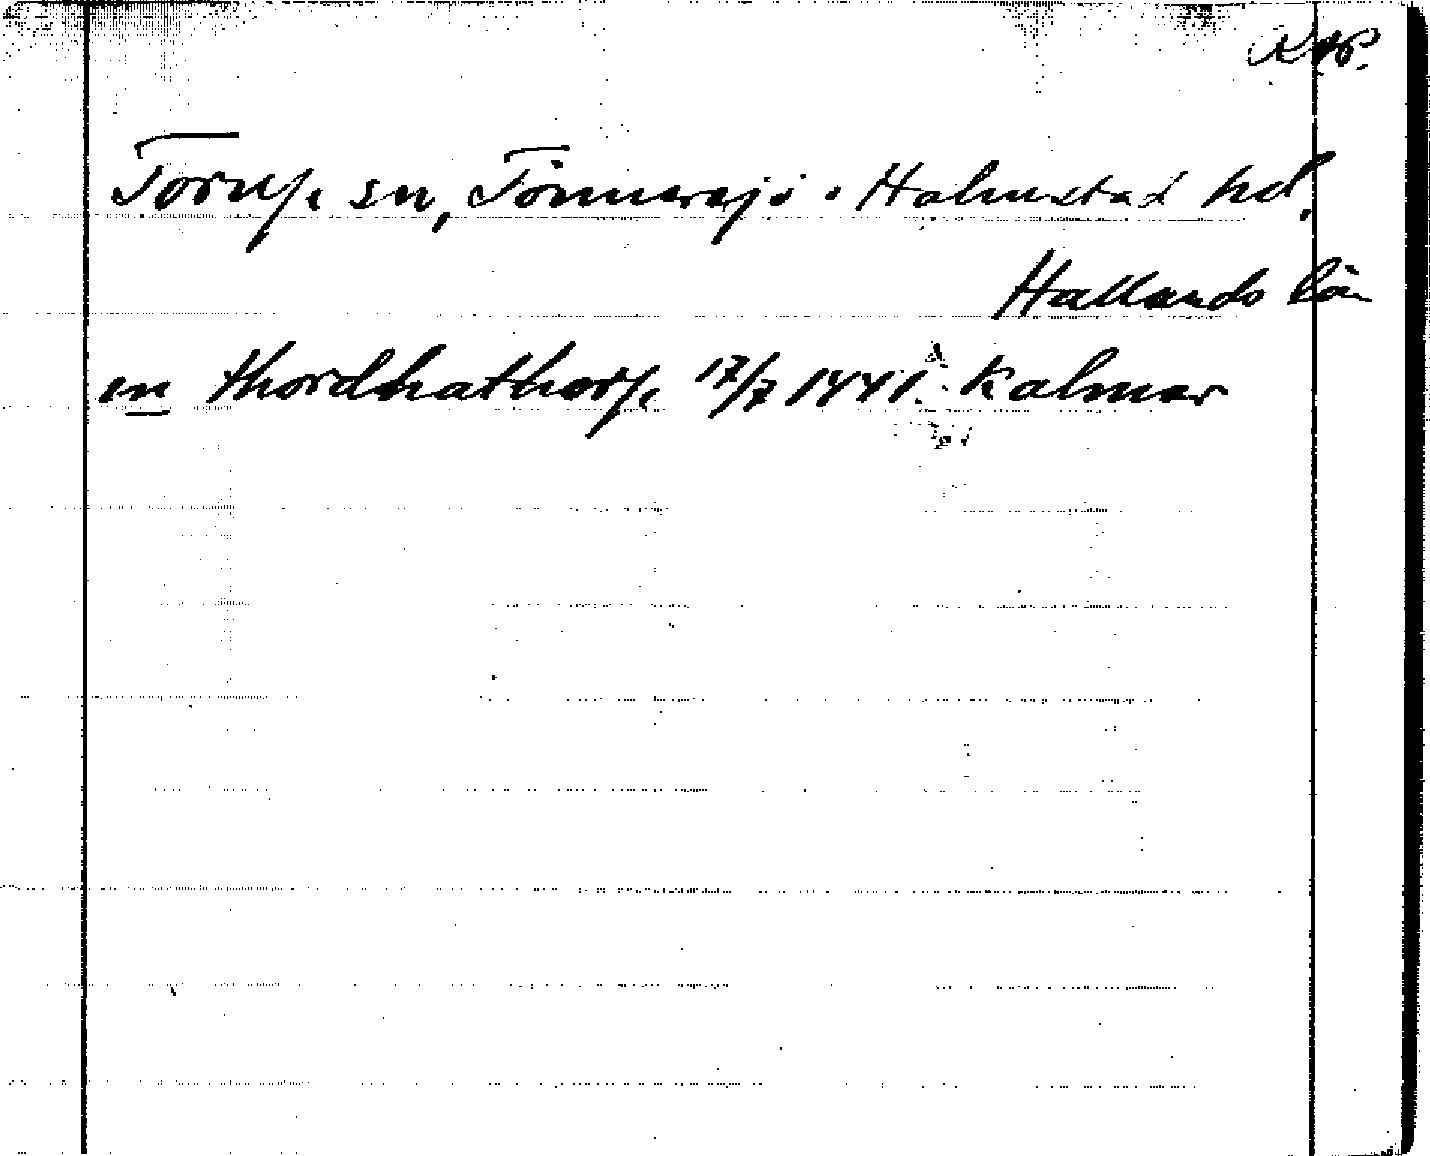 RAP.
Torup sn, Tönnersjö o Halmstad hd,
Hallands län
in thordhathorp 17/7 1441. Kalmar